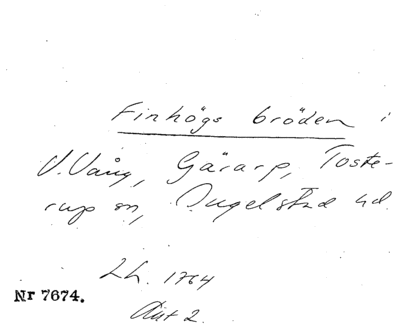 Finhögs bröden i
V. Vång, Gärarp, Toste-
rup sn, Ingelstad hd.
Lh. 1764
Akt 2.
Nr 7674.